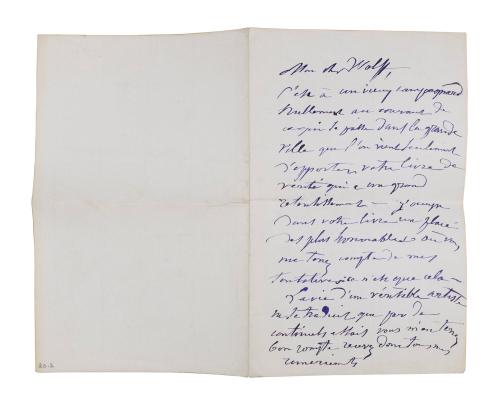 Mon cher Wolff,
C'est à un vieux campagnard
nullement au courant de
ce qui se passe dans la grande
ville que l'on vient seulement
d'apporter votre livre de
vérité qui a un grand
retentissement – j'occupe
dans votre livre une place
des plus honorables où vous
me tenez compte de mes
tentatives, si ce n'est que cela –
La vie d'un véritable artiste
ne se traduit que par de
continuels essais vous m'en tenez
bon compte recevez donc tous mes
remerciements
20.2